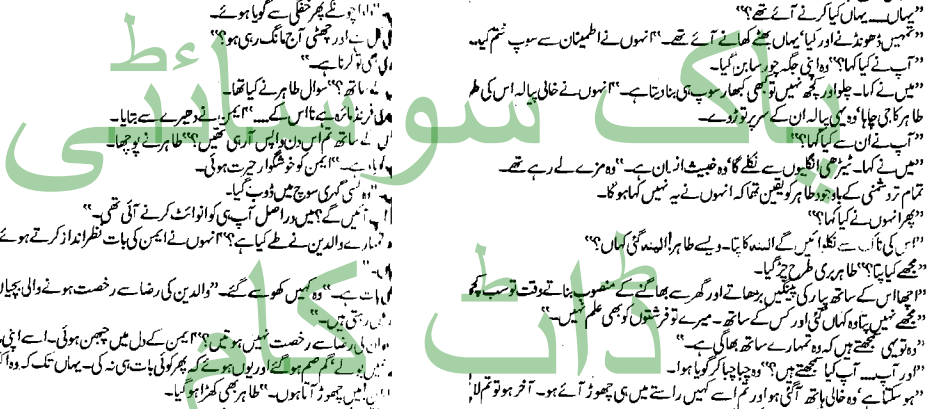 ”یہاں۔۔۔۔ یہاں کیا کرنے آئے تھے؟“
”تمہیں ڈھونڈنے اور کیا‘ یہاں بھٹے کھانے آئے تھے۔“ انہوں نے اطمینان سے سوپ ختم کیا۔
”آپ نے کیا کہا؟“ وہ اپنی جگہ چور سا بن گیا۔
”میں نے کہا۔ چلو اور کچھ نہیں تو کبھی کبھار سوپ ہی بنا دیتا ہے۔“ انہوں نے خالی پیالہ اس کی طر
طاہر کا جی چاہا‘ وہ یہی پیالہ ان کے سر پر توڑ دے۔
”آپ نے ان سے کیا کہا؟“
”میں نے کہا۔ ٹیڑھی انگلیوں سے نکلے گا‘ وہ خبیث انسان ہے۔“ وہ مزے لے رہے تھے۔
تمام تر دشمنی کے باوجود طاہر کو یقین تھا کہ انہوں نے یہ نہیں کہا ہو گا۔
”پھر انہوں نے کیا کہا؟“
”اس کی نانی سے نکلوائیں گے المنہ کا پتا۔ ویسے طاہر! المنہ گئی کہاں؟“
”مجھے کیا پتا؟“ طاہر بری طرح چڑ گیا۔
”اچھا اس کے ساتھ پیار کی پینگیں بڑھاتے اور گھر سے بھاگنے کے منصوبے بناتے وقت تو سب کچھ
”مجھے نہیں پتا وہ کہاں گئی اور کس کے ساتھ۔ میرے تو فرشتوں کو بھی علم نہیں۔“
”وہ تو یہی سمجھتے ہیں کہ وہ تمہارے ساتھ بھاگی ہے۔“
”اور آپ۔۔۔۔ آپ کیا سمجھتے ہیں؟“ وہ چبا چبا کر گویا ہوا۔
”ہو سکتا ہے‘ وہ خالی ہاتھ آ گئی ہو اور تم اسے کہیں راستے میں ہی چھوڑ آئے ہو۔ آخر ہو تو تم لا
چونکے پھر خفگی سے گویا ہوئے۔
اور چھٹی آج مانگ رہی ہو؟“
بھی تو کرنا ہے۔“
ساتھ؟“ سوال طاہر نے کیا تھا۔
فرینڈ مائرہ ہے نا اس کے۔۔۔۔“ ایمن نے دھیرے سے بتایا۔
کے ساتھ تم اس دن واپس آ رہی تھیں؟“ طاہر نے پوچھا۔
ہے۔“ ایمن کو خوشگوار حیرت ہوئی۔
”وہ کسی گہری سوچ میں ڈوب گیا۔
آئیں گے؟ میں دراصل آپ ہی کو انوائٹ کرنے آئی تھی۔“
تمہارے والدین نے طے کیا ہے؟“ انہوں نے ایمن کی بات نظر انداز کرتے ہوئے
بات ہے۔“ وہ کہیں کھو سے گئے۔ ”والدین کی رضا سے رخصت ہونے والی بچیاں
رہتی ہیں۔“
کی رضا سے رخصت نہیں ہوتیں؟“ ایمن کے دل میں چبھن ہوئی۔ اسے اپنی
بولے‘ گم صم ہو گئے اور یوں ہوئے کہ پھر کوئی بات ہی نہ کی۔ یہاں تک کہ وہ
میں چھوڑ آتا ہوں۔“ طاہر بھی کھڑا ہو گیا۔
پاک سوسائٹی
ڈاٹ کام